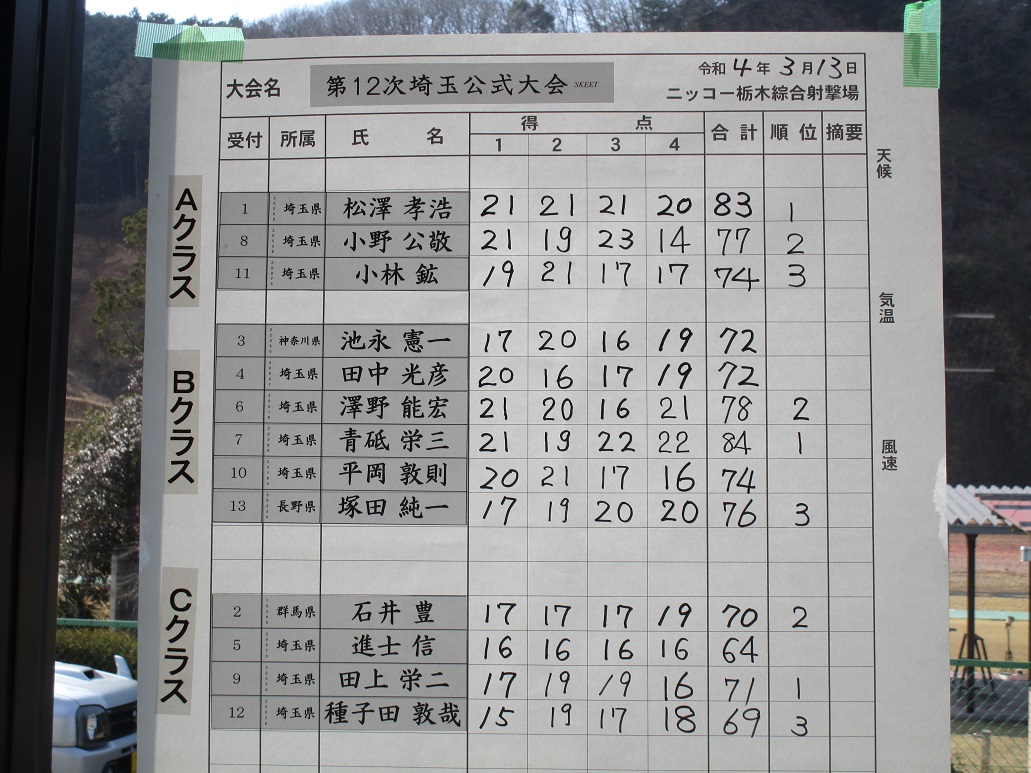 令和 4 年 3 月 13 日
大会名 第12次埼玉公式大会 SKEET
ニッコー栃木綜合射撃場
受付 所属 氏 名 得 点 合計 順位 摘要
1 2 3 4
天候
Aクラス
1 埼玉県 松澤 孝浩 21 21 21 20 83 1
8 埼玉県 小野 公敬 21 19 23 14 77 2
11 埼玉県 小林 鉱 19 21 17 17 74 3
気温
Bクラス
3 神奈川県 池永 憲一 17 20 16 19 72
4 埼玉県 田中 光彦 20 16 17 19 72
6 埼玉県 澤野 能宏 21 20 16 21 78 2
7 埼玉県 青砥 栄三 21 19 22 22 84 1
風速
10 埼玉県 平岡 敦則 20 21 17 16 74
13 長野県 塚田 純一 17 19 20 20 76 3
Cクラス
2 群馬県 石井 豊 17 17 17 19 70 2
5 埼玉県 進士 信 16 16 16 16 64
9 埼玉県 田上 栄二 17 19 19 16 71 1
12 埼玉県 種子田 敦哉 15 19 17 18 69 3